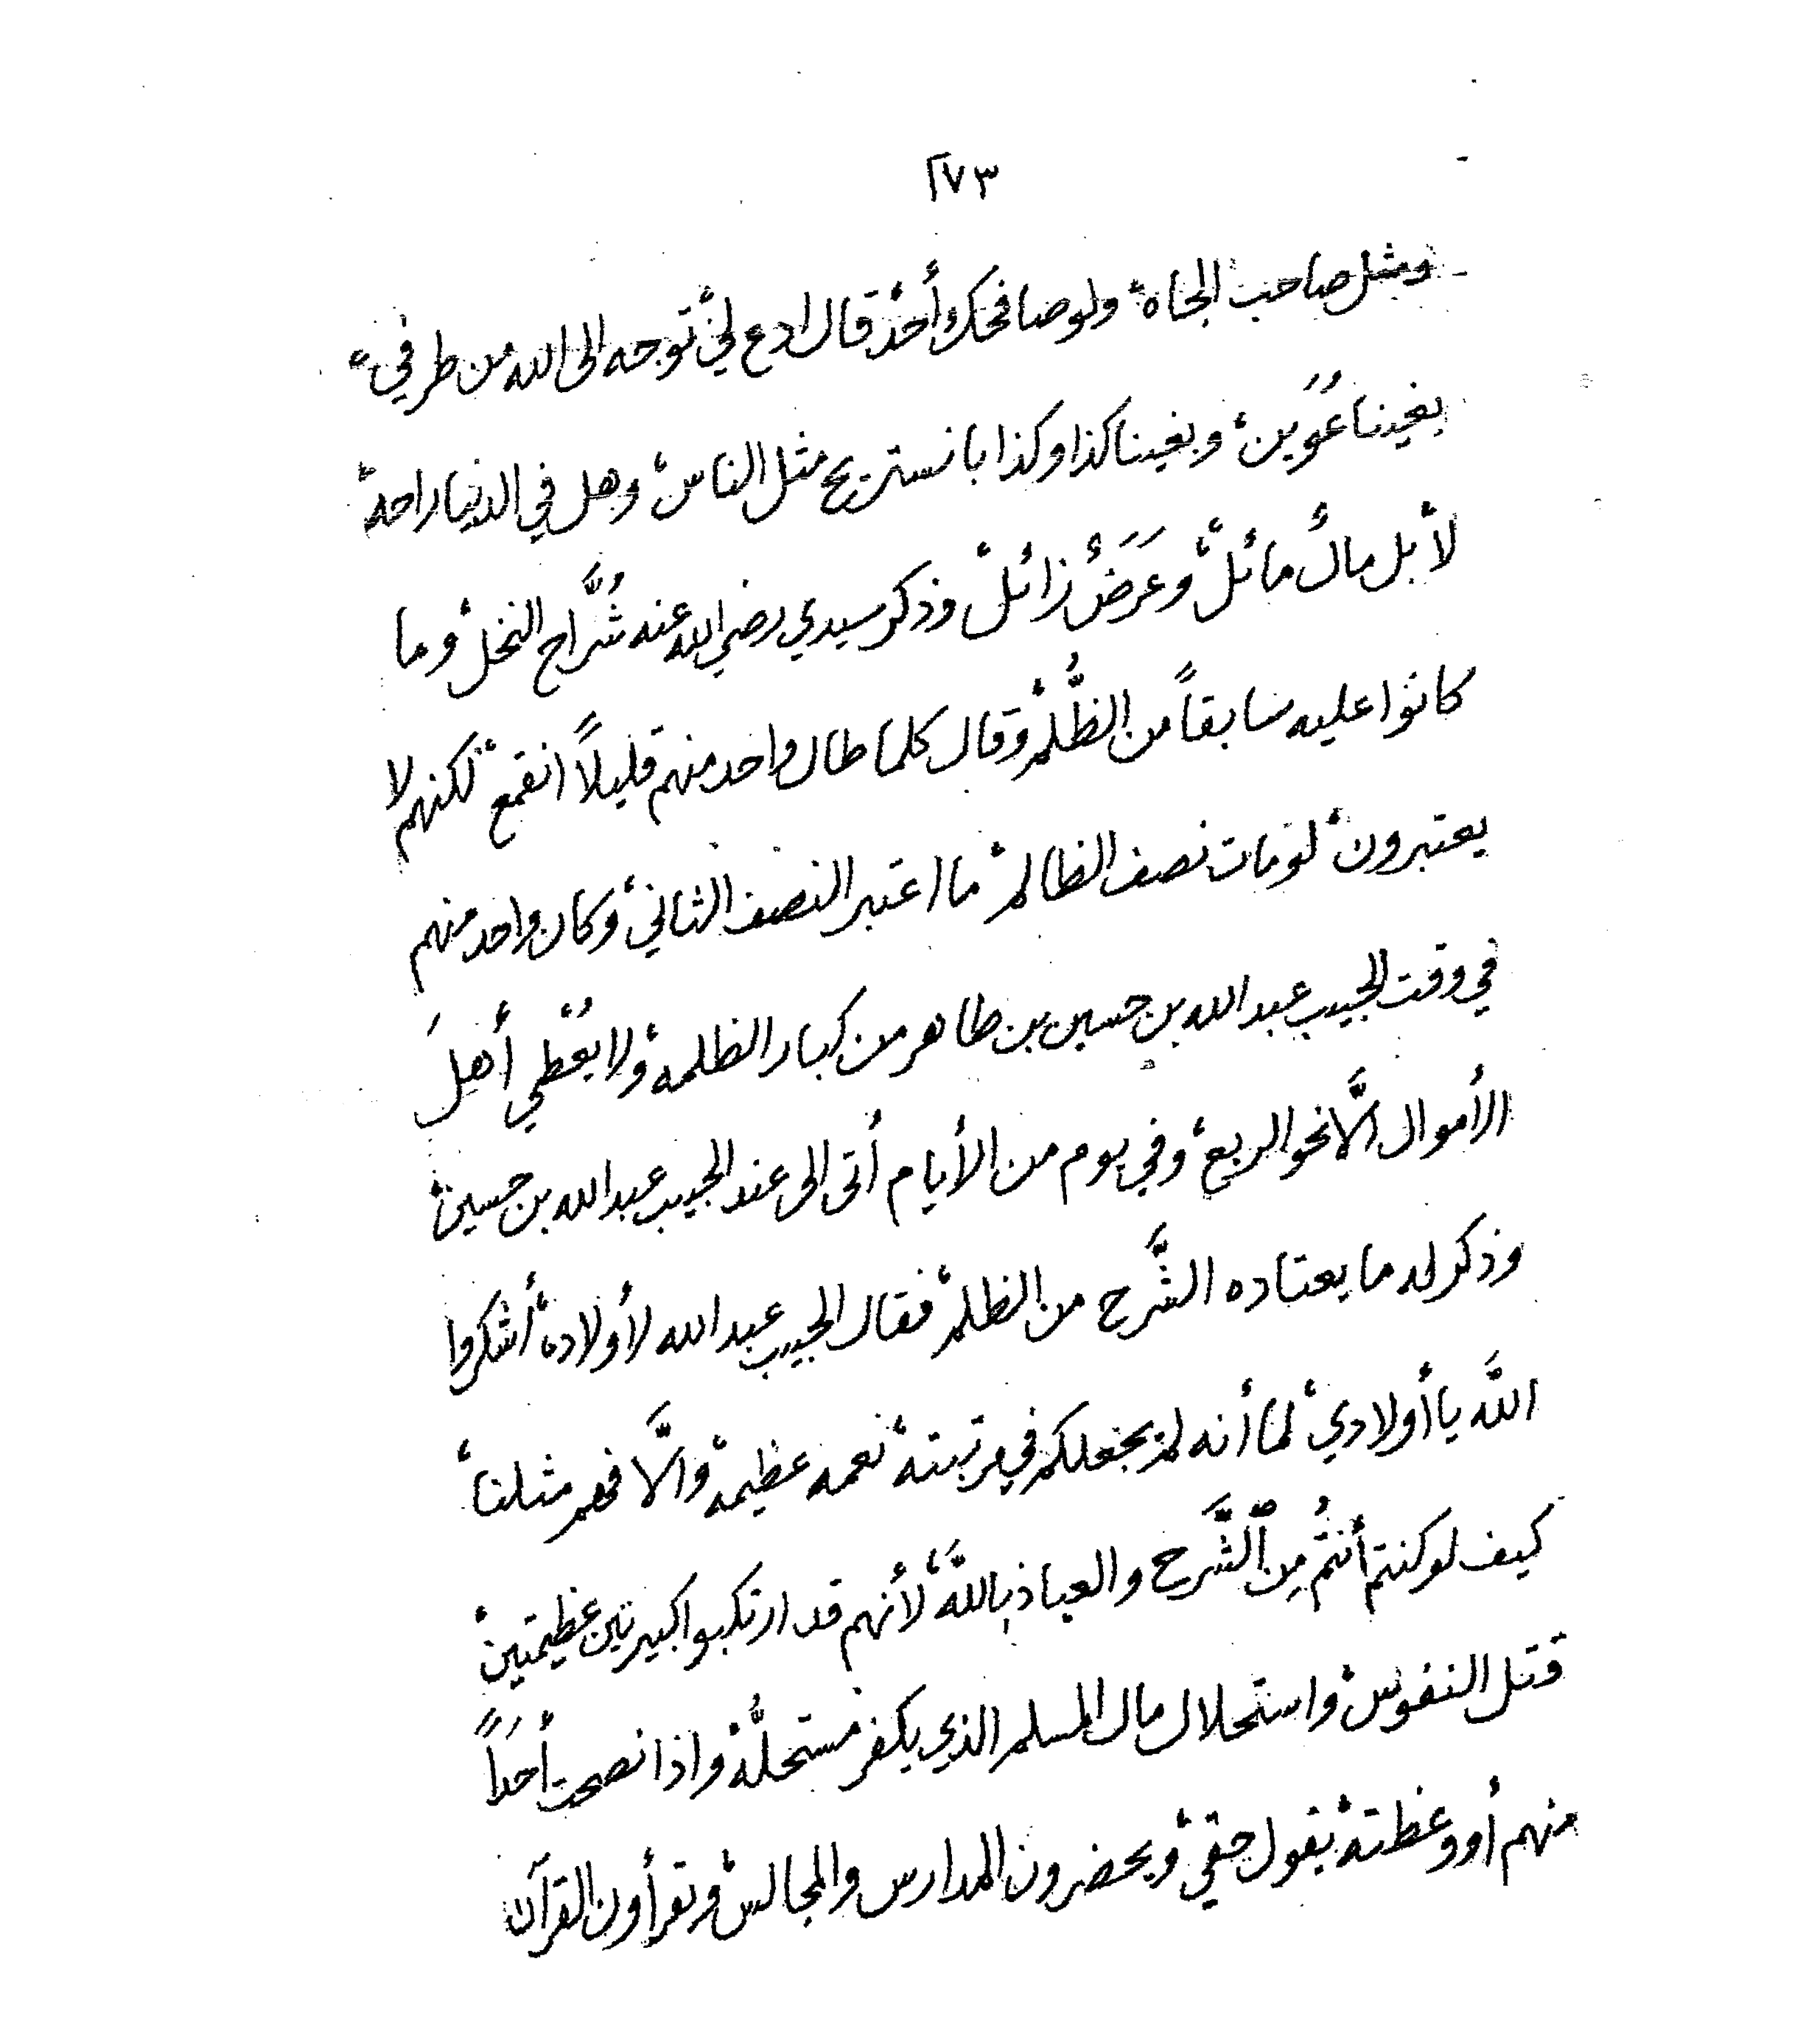 ٢٧٣
ومثل صاحب الجاه، ولو صافحك أحد قال ادع لي، توجه الى الله من طرفي،
بغينا عُوَين، وبغينا كذا وكذا با نستريح مثل الناس، وهل في الدنيا راحة،
لا، بل مالٌ مائل، وعَرَضٌ زائل، وذكر سيدي رضي الله عنه شُرَّاح النخل، وما
كانوا عليه سابقاً من الظُّلم، وقال كلما طال واحد منهم قليلاً انقمع، لكنهم لا
يعتبرون، لو مات نصف الظالم، ما اعتبر النصف الثاني، وكان واحد منهم
في وقت الحبيب عبد الله بن حسين بن طاهر من كبار الظلمه، ولا يُعْطي أهلَ
الأموال الَّا نحو الربع، وفي يوم من الأيام أتى الى عند الحبيب عبد الله بن حسين،
وذكر له ما يعتاده الشَّرح من الظلم، فقال الحبيب عبد الله لأولاده، أشكروا
اللَّه يا أولادي، لما أنه لم يجعلكم في مرتبته، نعمه عظيمه، والَّا فهم مثلنا،
كيف لو كنتم أنتُم مِن الشَّرح والعياذ بالله، لأنهم قد ارتكبوا كبيرتين عظيمتين،
قتل النفوس، واستحلال مال المسلم الذي يكفر مستحلُّه، واذا نصحت أحَداً
منهم أو وعظته، يقول حقي، ويحضرون المدارس والمجالس، ويقرأون القرآن